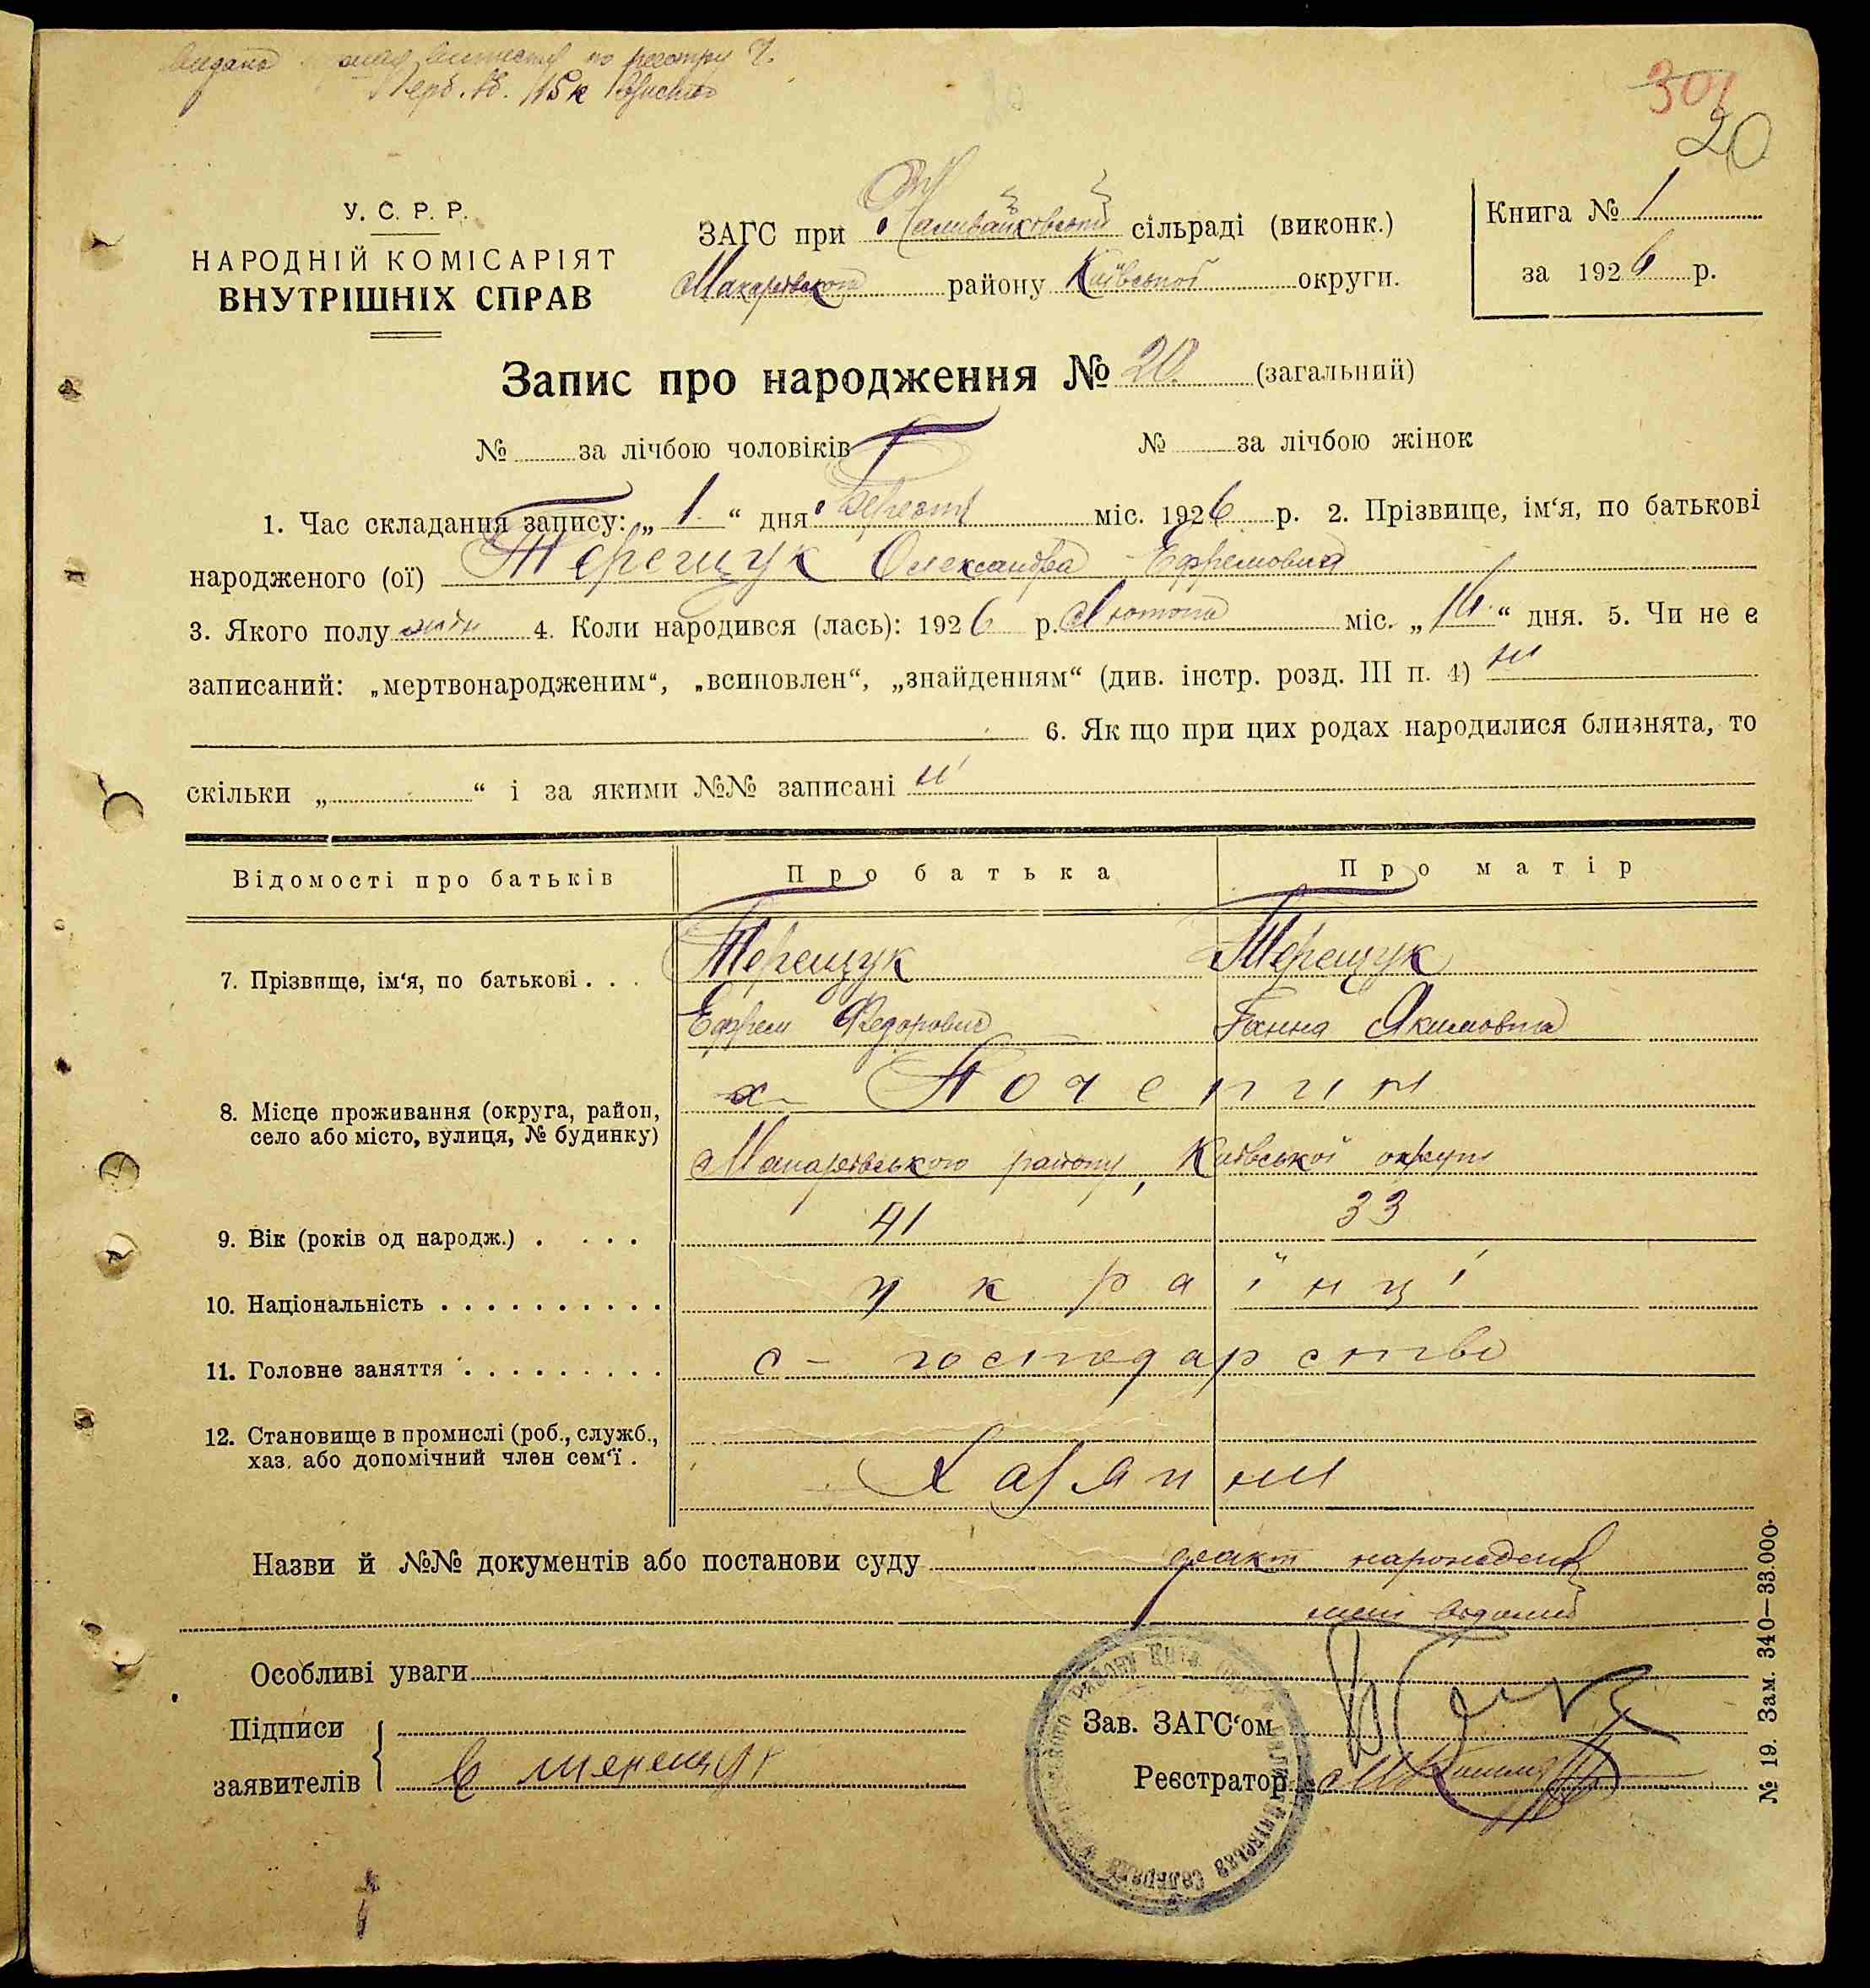 видано по реєстру
301
20
У. С. Р. Р.
НАРОДНІЙ КОМІСАРІЯТ
ВНУТРІШНІХ СПРАВ
ЗАГС при Наливайковській сільраді (виконк.)
Макарівського району Київської округи.
Книга № 1
за 1926 р.
Запис про народження № 20. (загальний)
№ за лічбою чоловіків № за лічбою жінок
1. Час складання запису: „ 1. “ дня Березня міс. 1926 р. 2. Прізвище, ім‘я, по батькові
народженого (ої) Терещук Олександра Ефремовна
3. Якого полу жін 4. Коли народився (лась): 1926 р. Лютого міс. „ “ дня. 5. Чи не є
записаний: „мертвонародженим“, „всиновлен“, „знайденням“ (див. інстр. розд. III п. 4) ні
6. Як що при цих родах народилися близнята, то
скільки „ “ і за якими №№ записані ні
Відомості про батьків Про батька Про матір
7. Прізвище, ім‘я, по батькові . . . Терещук Терещук
Ефрем Федорович Ганна Якимовна
8. Місце проживання (округа, район, х. Почепин
село або місто, вулиця, № будинку) Макарівського району, Київської округи
9. Вік (років од народж.) . . . . 41 33
10. Національність . . . . . . . . . . українці
11. Головне заняття . . . . . . . . . с-господарство
12. Становище в промислі (роб., служб.,
хаз. або допомічний член сем‘ї . Хазяини
Назви й №№ документів або постанови суду факт народженя
мені відомий
Особливі уваги
Підписи
заявителів Е терещук
Зав. ЗАГС‘ом
Реєстратор
№ 19. Зам. 340—33.000.